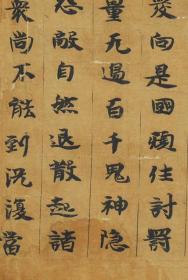 發向是國規往討罰
量无邊百千鬼神隐
怨敵自然退散起諸
衆尚不能到况復當